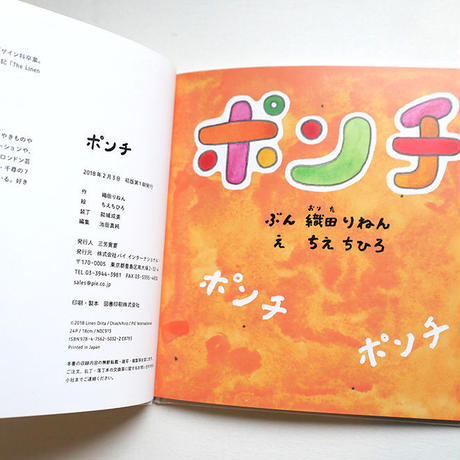 ザイン科卒業。
記「The Linen
やきものや
ーションや、
ロンドン芸
・千尋の7
いる。好き
ポンチ
2018年2月3日 初版第1刷発行
作 織田りねん
絵 ちえちひろ
装丁
編集
発行人 三芳寛要
発行元 株式会社パイ インターナショナル
〒170-0005 東京都豊島区南大塚2-32-4
TEL 03-3944-3981
sales@pie.co.jp
印刷・製本 図書印刷株式会社
©2018 Linen Orita / Chiechihiro / PIE International
24P / 18cm / NDC913
ISBN978-4-7562-5032-2 C8793
Printed in Japan
本書の収録内容の無断転載・複写・複製等を禁じます。
ご注文、乱丁・落丁本の交換等に関するお問い合わせは、
小社までご連絡ください。
ポンチ
おりた
ぶん 織田りねん
え ちえちひろ
ポンチ
ポンチ